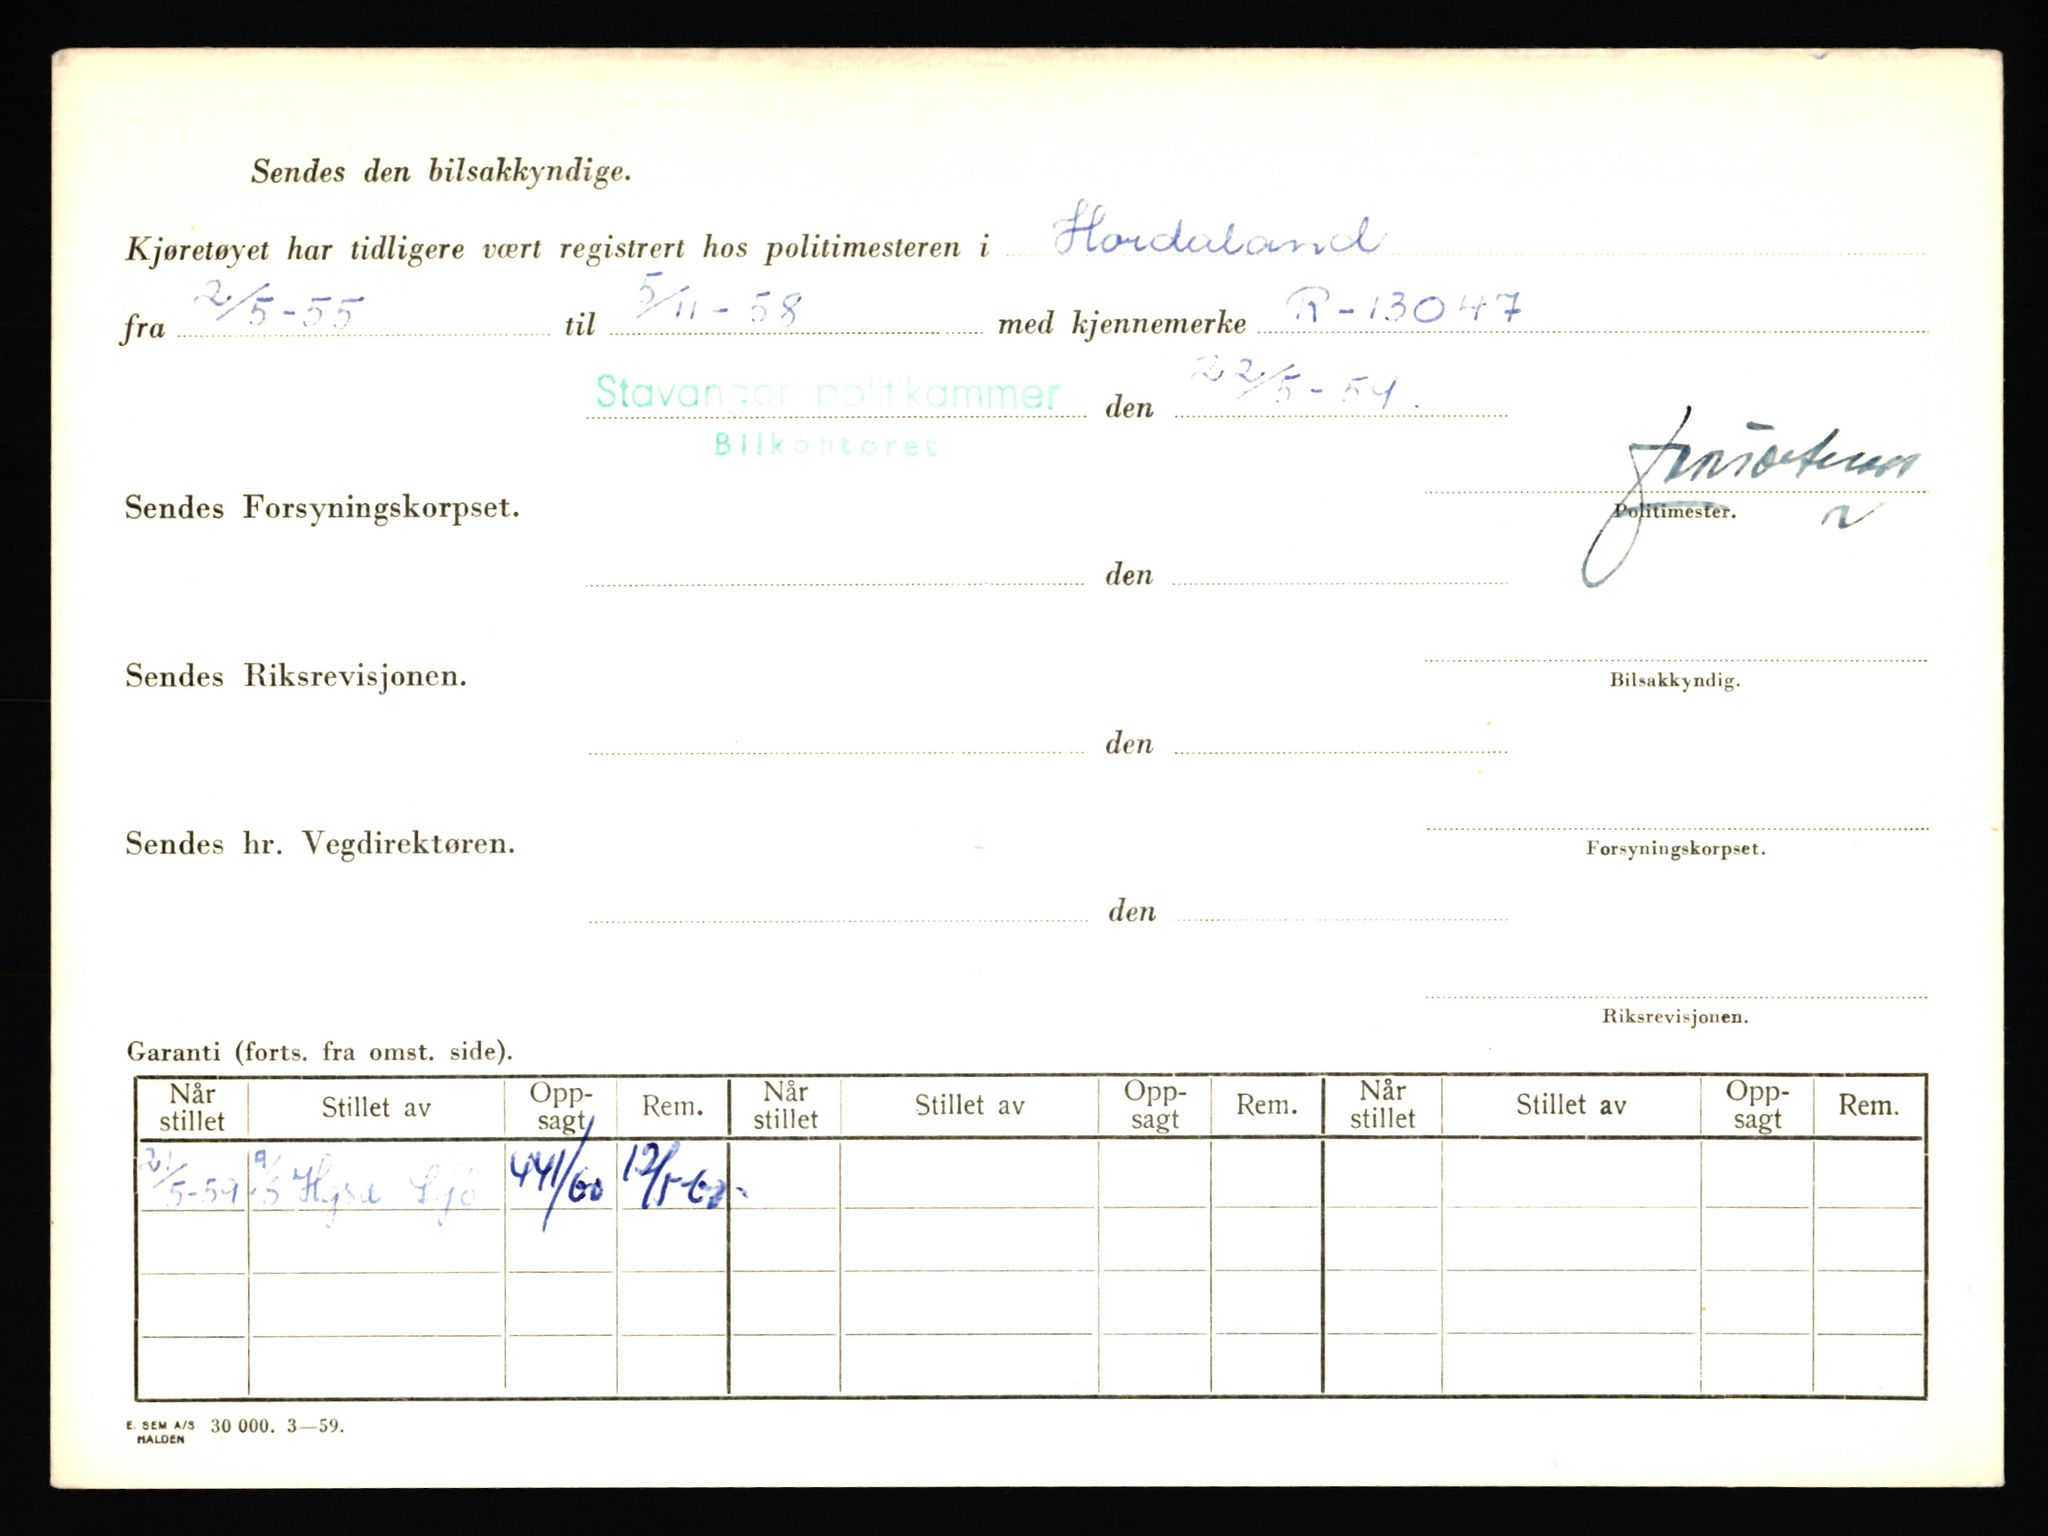 Sendes den bilsakkyndige.
Kjøretøyet har tidligere vært registrert hos politimesteren i Hordaland
fra 2/5-55 til 5/11-58 med kjennemerke R-13047
Stavanger politikammer den 22/5-59.
Bilkontoret
Sendes Forsyningskorpset.
Politimester.
den
Sendes Riksrevisjonen.
Bilsakkyndig.
den
Sendes hr. Vegdirektøren.
Forsyningskorpset.
den
Riksrevisjonen.
Garanti (forts. fra omst. side).
Når stillet Stillet av Opp-sagt Rem. Når stillet Stillet av Opp-sagt Rem. Når stillet Stillet av Opp-sagt Rem.
21/5-59 A/S 441/60
E. SEM A/S 30 000. 3—59.
HALDEN